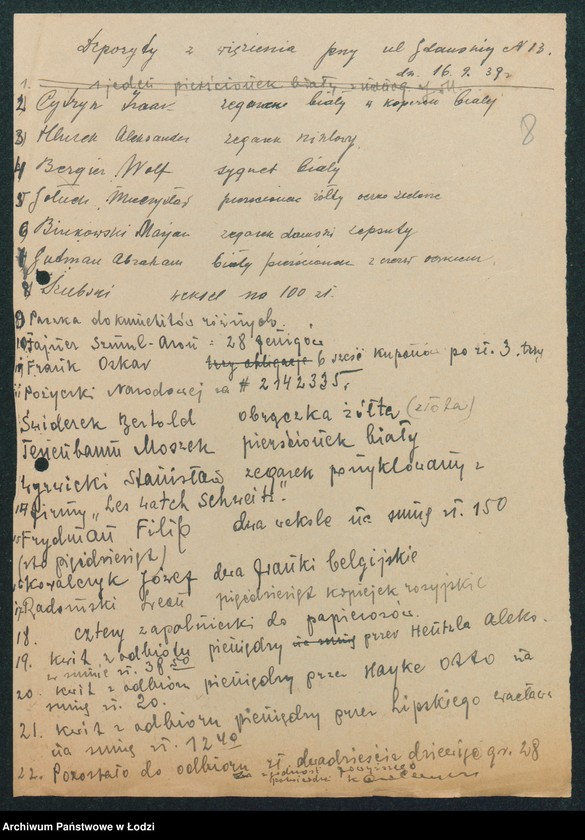 Depozyty z więzienia przy ul Gdańskiej N 13.
dn. 16. 9. 39 r
1. jeden pierścionek biały
8
2) Cytryn Izaak zegarek biały w kopercie białej
3) Aleksander zegarek niklowy
4) Bergier Wolf sygnet biały
5 Mieczysław pierścionek żółty oczko zielone
6) Binkowski Marjan zegarek damski zepsuty
7 Gutman Abraham biały pierścionek z oczkiem
8) Szubski weksel na 100 zł.
9 Paczka dokumentów różnych.
10 Fajner Szmul-Aron = 28 fenigów
11 Frank Oskar trzy obligacje 6 sześć kuponów po zł. 3. trzy
Pożyczki Narodowej za # 2142335.
Świderek Bertold obrączka żółta (złota)
Tenenbaum Moszek pierścionek biały
Wyrwicki Stanisław zegarek poniklowany z
14 firmy „Les watch Schweitz."
15 Frydman Filip dwa weksle na sumę zł. 150
(sto pięćdziesiąt)
16 Kowalczyk Józef dwa franki belgijskie
17 Radomski Leon pięćdziesiąt kopiejek rosyjskic
18. cztery zapalniczki do papierosów.
19. kwit z odbioru pieniędzy na sumę przez Hentzla Aleks.
w sumie zł. 38 50
20. kwit z odbioru pieniędzy przez Hayke Otto na
sumę zł. 20.
21. kwit z odbioru pieniędzy przez Lipskiego Wacława
na sumę zł. 12 40
22. Pozostało do odbioru zł. dwadzieścia dziewięć gr. 28
za zgodność
Archiwum Państwowe w Łodzi